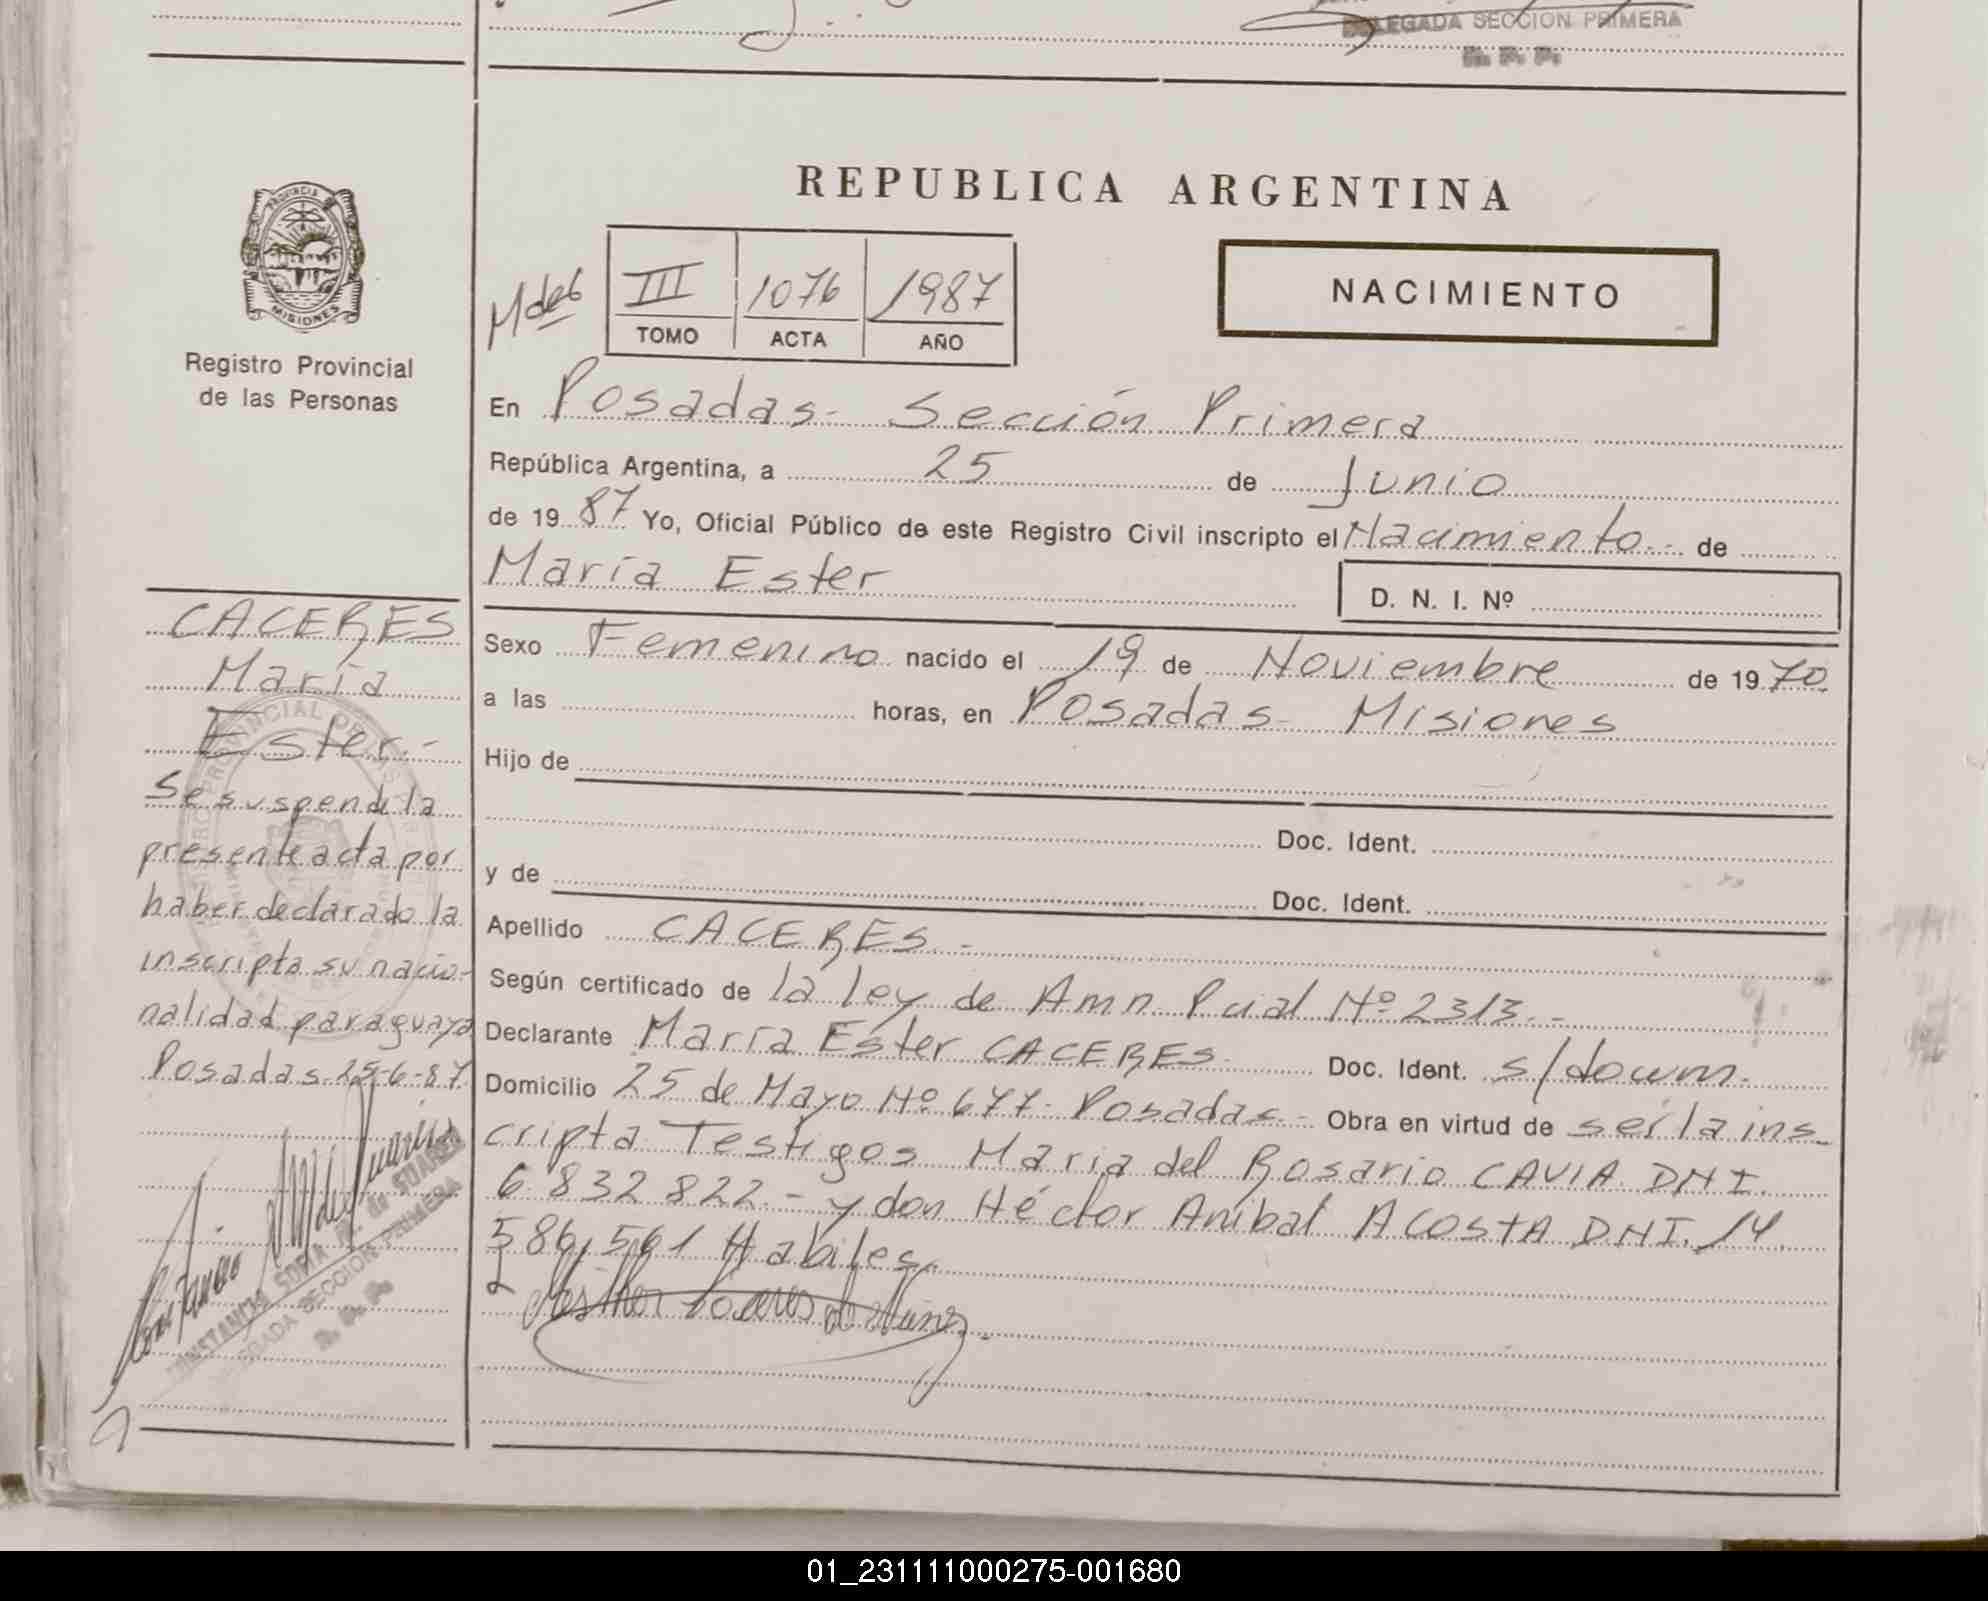 DELEGADA SECCION PRIMERA
R. P. P.
REPUBLICA ARGENTINA
PROVINCIA
MISIONES
Registro Provincial
de las Personas
III 1076 1987
TOMO ACTA AÑO
NACIMIENTO
En Posadas - Sección Primera
República Argentina, a 25 de Junio
de 1987 Yo, Oficial Público de este Registro Civil inscripto el Nacimiento - de
María Ester
D. N. I. Nº
Sexo Femenino nacido el 19 de Noviembre de 1970
a las horas, en Posadas - Misiones
Hijo de
Doc. Ident.
y de
Doc. Ident.
Apellido CACERES -
Según certificado de la ley de Amn. Pcial Nº 2313 -
Declarante María Ester CACERES Doc. Ident. s/docum.
Domicilio 25 de Mayo Nº 677 - Posadas - Obra en virtud de ser la ins-
cripta Testigos María del Rosario CAVIA DNI.
6.832.822 - y don Héctor Anibal ACOSTA DNI. 14.
586.561 Habiles
CACERES
María
Ester.-
Se suspende la
presente acta por
haber declarado la
inscripta su nacio-
nalidad paraguaya
Posadas 25-6-87
CONSTANCIA SOFIA M. de SUAREZ
DELEGADA SECCION PRIMERA
R. P. P.
01_231111000275-001680